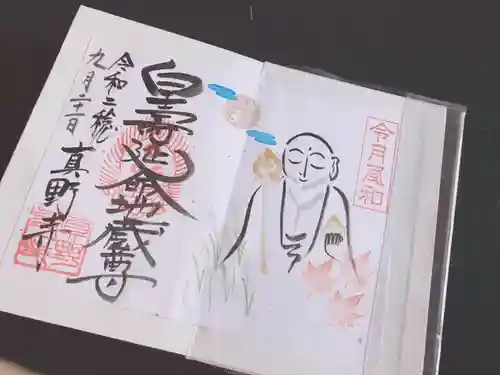 令月風和
皇壽延命地蔵尊
令和二穐
九月二十一日
真野寺